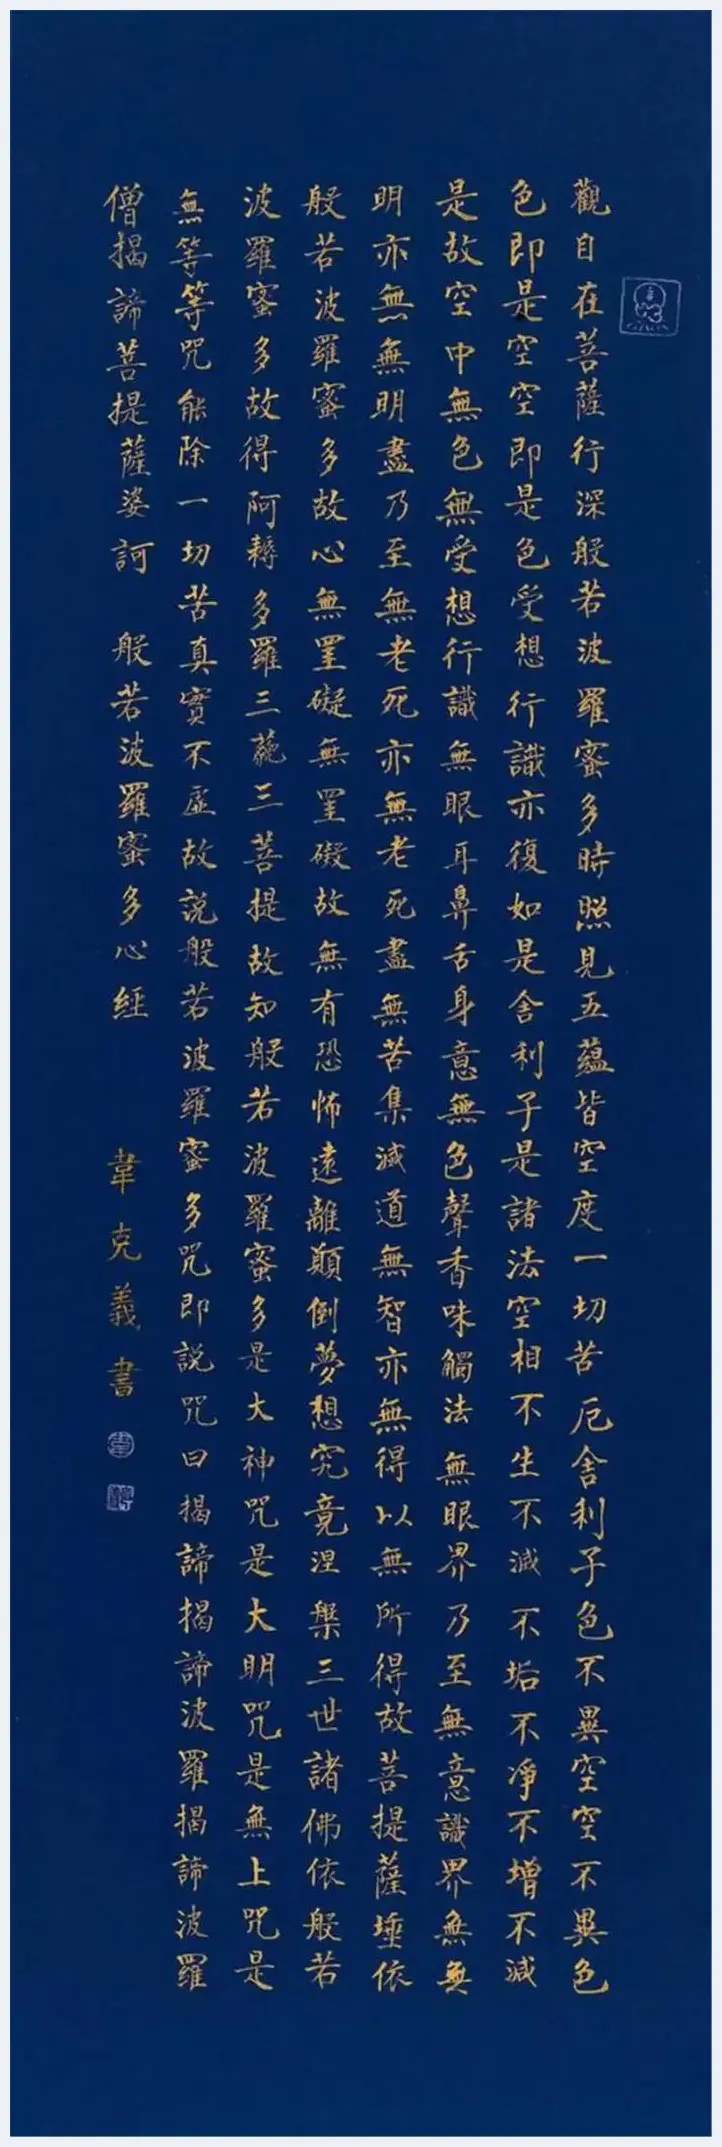 觀自在菩薩行深般若波羅蜜多時照見五蘊皆空度一切苦厄舍利子色不異空空不異色
色即是空空即是色受想行識亦復如是舍利子是諸法空相不生不滅不垢不淨不增不減
是故空中無色無受想行識無眼耳鼻舌身意無色聲香味觸法無眼界乃至無意識界無無
明亦無無明盡乃至無老死亦無老死盡無苦集滅道無智亦無得以無所得故菩提薩埵依
般若波羅蜜多故心無罣礙無罣礙故無有恐怖遠離顛倒夢想究竟涅槃三世諸佛依般若
波羅蜜多故得阿耨多羅三藐三菩提故知般若波羅蜜多是大神咒是大明咒是無上咒是
無等等咒能除一切苦真實不虛故說般若波羅蜜多咒即說咒曰揭諦揭諦波羅揭諦波羅
僧揭諦菩提薩婆訶 般若波羅蜜多心經
韋克義書